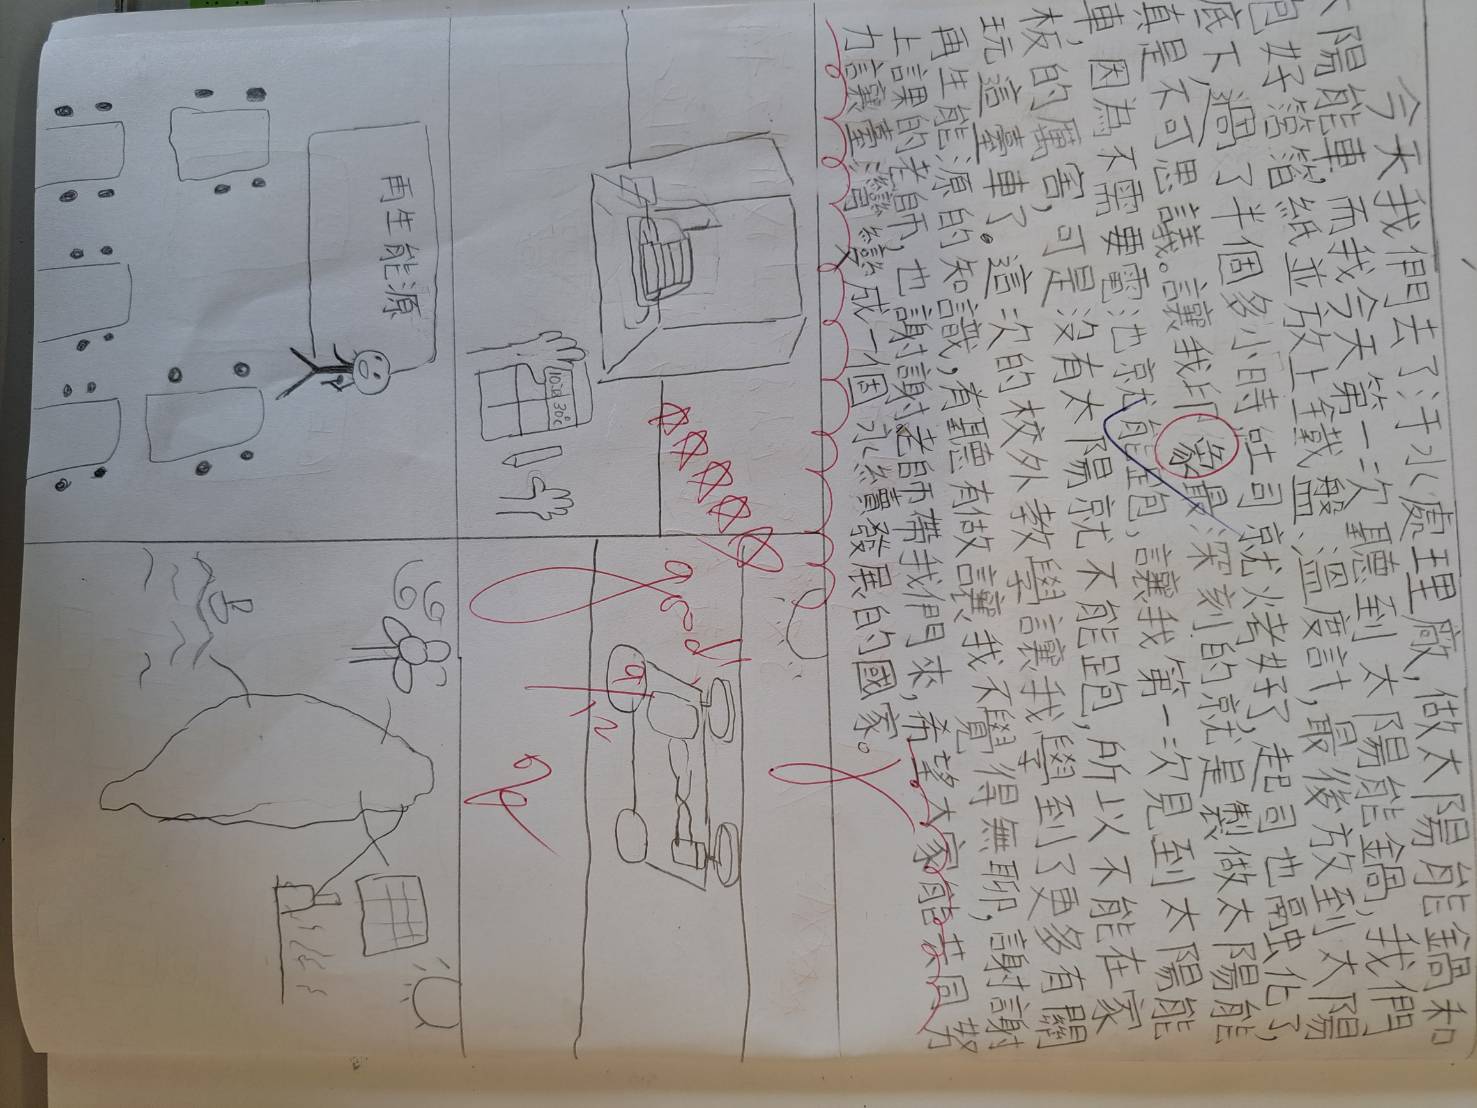 今天我們去了汙水處理廠，做太陽能鍋和
太陽能車，而我今天第一次聽到太陽能鍋，我們
包好箔箔紙並放上鐵盤、溫度計，最後放到太陽
底下，過了半個多小時吐司就烤好了，起司也融化了，
真是不可思議。讓我印象最深刻的就是製做太陽能
車，因為不需要電池就能跑，讓我第一次見到太陽能
板的厲害，可是沒有太陽就不能跑，所以不能在家
玩這臺車了。這次的校外教學讓我學到了更多有關
再生能源的知識，有聽有做讓我不覺得無聊，謝謝
上課的老師，也謝謝老師帶我們來，希望大家能共同努
力讓臺灣變成一個永續發展的國家。
30°C
Good!!
再生能源